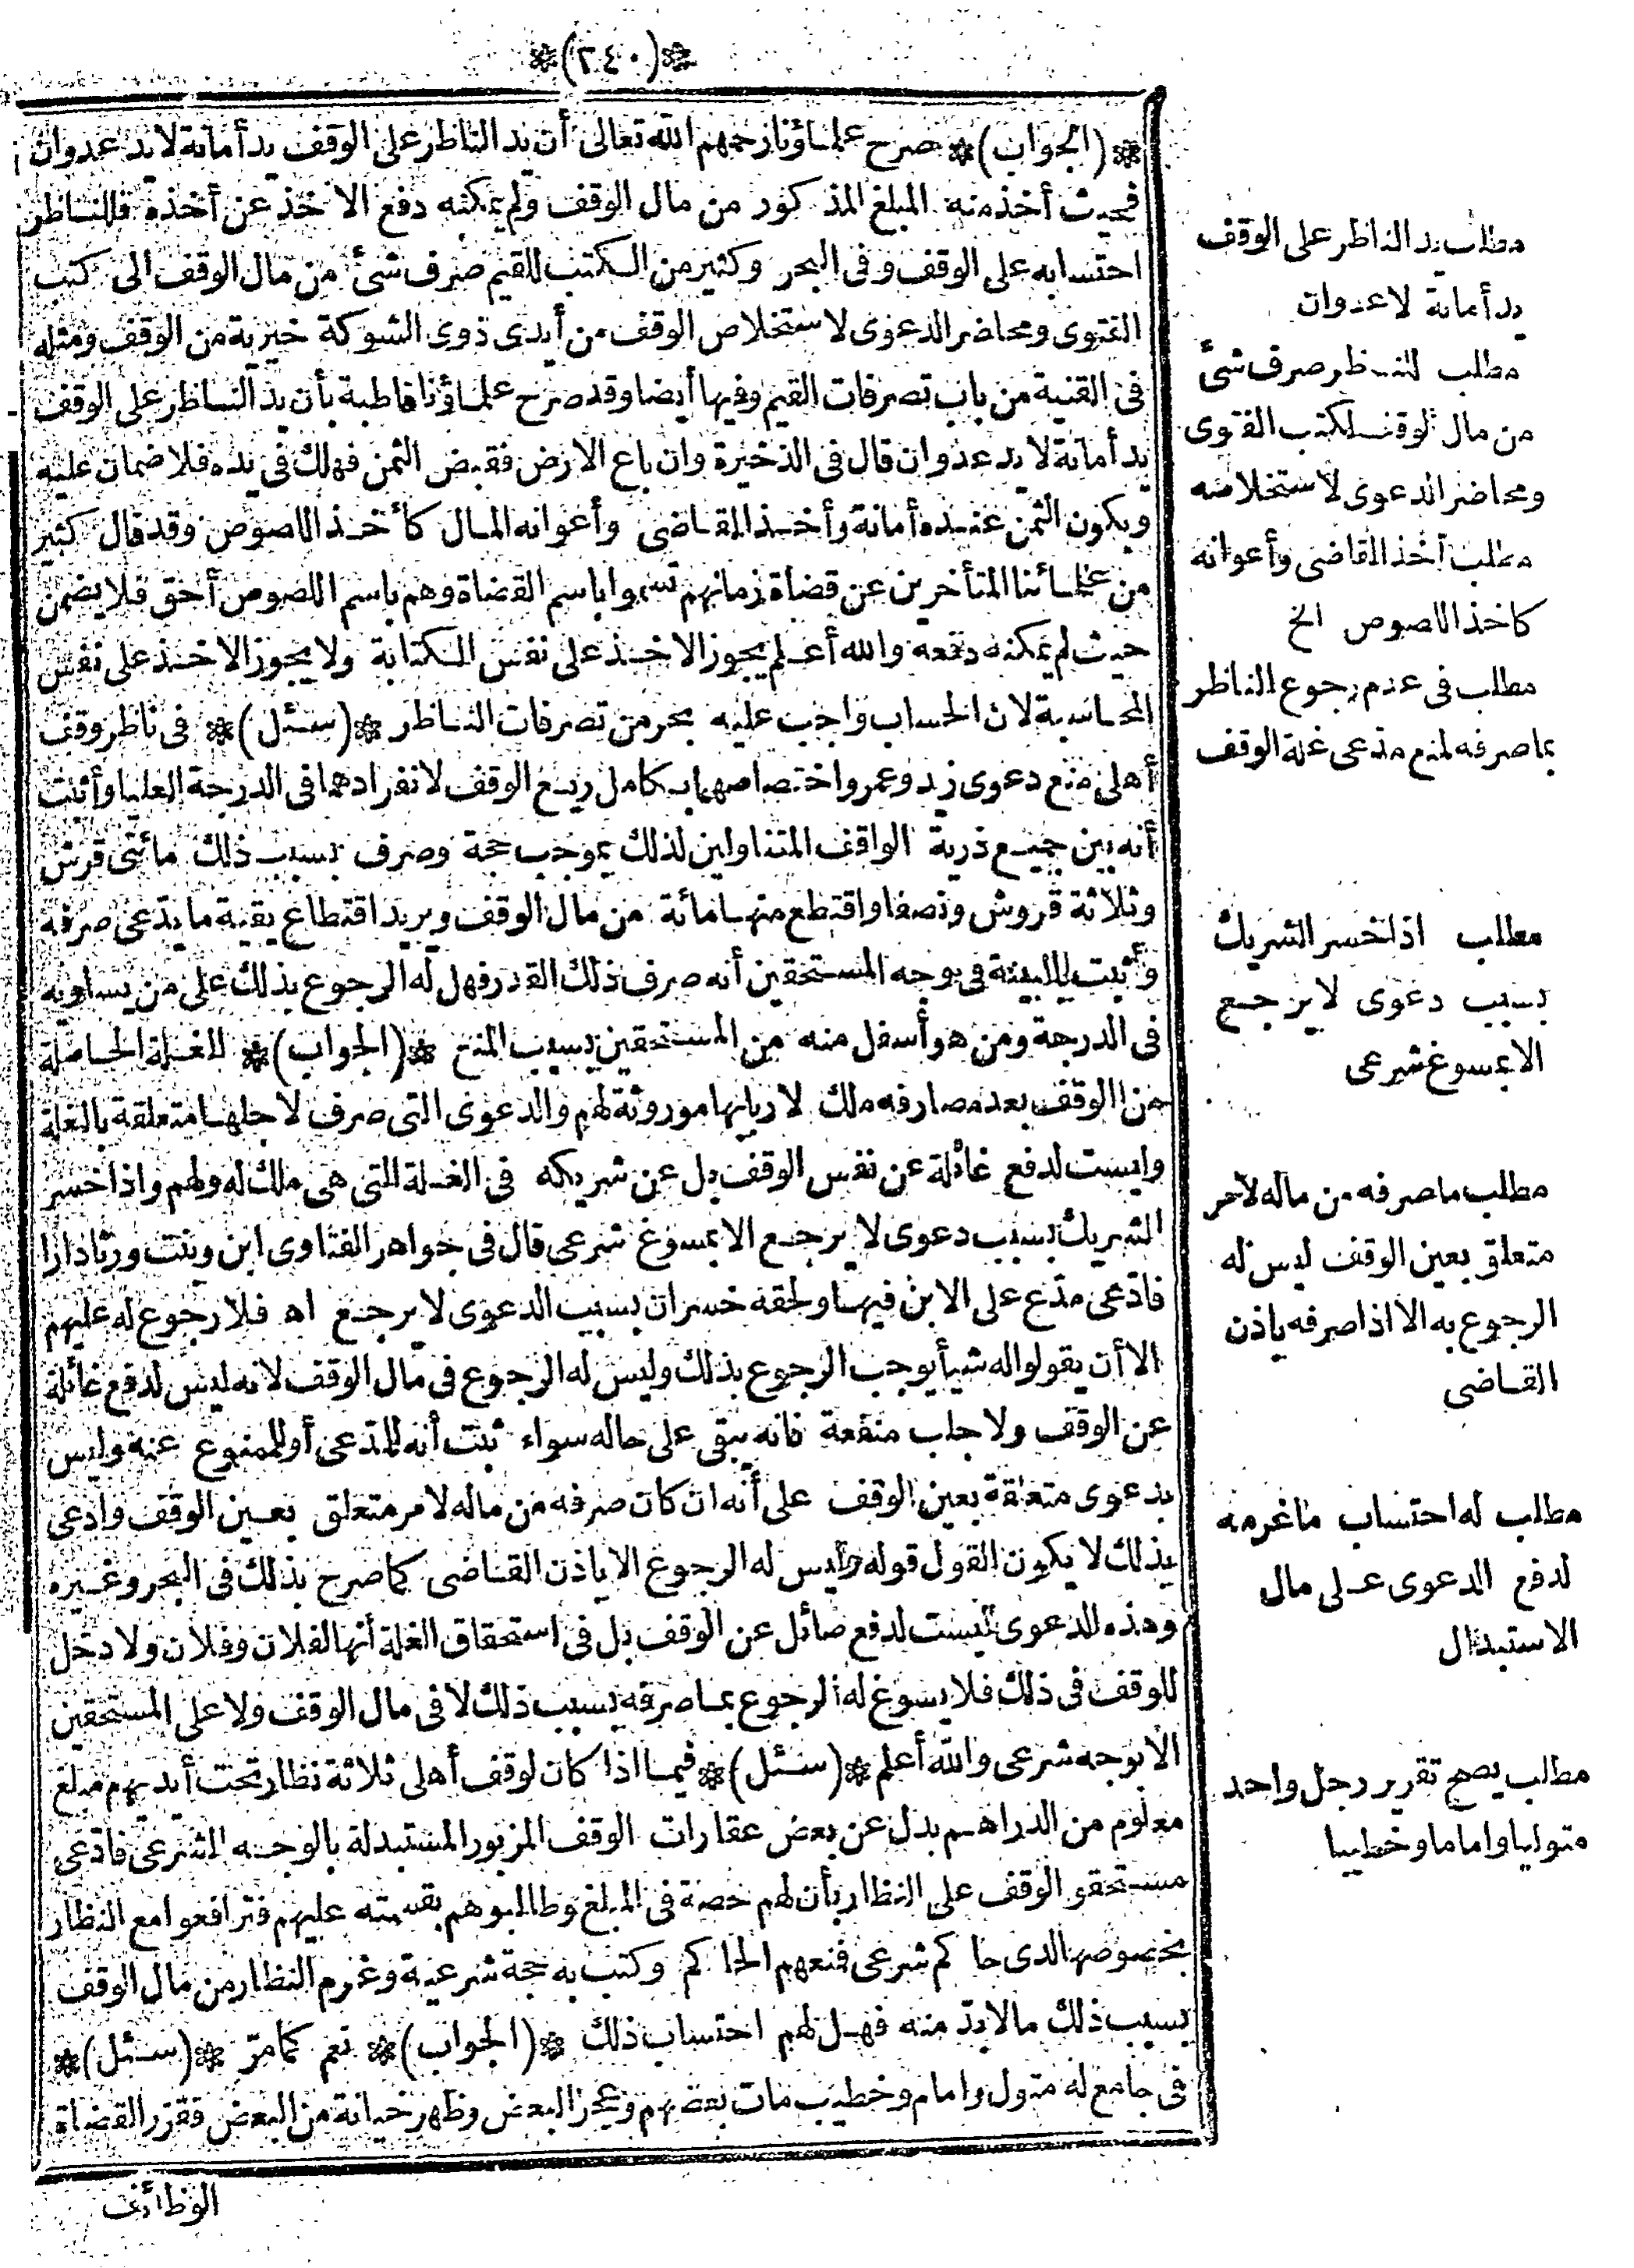 ❊(٢٤٠)❊
❊(الجواب)❊ صرح علماؤنا رحمهم الله تعالى أن يد الناظر على الوقف يد أمانة لا يد عدوان
فحيث أخذ منه المبلغ المذكور من مال الوقف ولم يمكنه دفع الآخذ عن أخذه فللناظر
احتسابه على الوقف وفى البحر وكثير من الكتب للقيم صرف شئ من مال الوقف الى كتب
الفتوى ومحاضر الدعوى لاستخلاص الوقف من أيدى ذوى الشوكة خيرية من الوقف ومثله
فى القنية من باب تصرفات القيم وفيها أيضا وقد صرح علماؤنا قاطبة بأن يد الناظر على الوقف
يد أمانة لا يد عدوان قال فى الذخيرة وان باع الارض فقبض الثمن فهلك فى يده فلا ضمان عليه
ويكون الثمن عنده أمانة وأخذ القاضى وأعوانه المال كأخذ اللصوص وقد قال كثير
من علمائنا المتأخرين عن قضاة زمانهم تسموا باسم القضاة وهم باسم اللصوص أحق فلا يضمن
حيث لم يمكنه دفعه والله أعلم يجوز الاخذ على نفس الكتابة ولا يجوز الاخذ على نفس
المحاسبة لان الحساب واجب عليه بحر من تصرفات الناظر ❊(سئل)❊ فى ناظر وقف
أهلى منع دعوى زيد وعمرو اختصاصهما بكامل ريع الوقف لانفرادهما فى الدرجة العليا وأثبت
أنه بين جميع ذرية الواقف المتناولين لذلك بموجب حجة وصرف بسبب ذلك مائتى قرش
وثلاثة قروش ونصفا واقتطع منها مائة من مال الوقف ويريد اقتطاع بقية ما يدعى صرفه
وأثبت بالبينة فى وجه المستحقين أنه صرف ذلك القدر فهل له الرجوع بذلك على من يساويه
فى الدرجة ومن هو أسفل منه من المستحقين بسبب المنع ❊(الجواب)❊ الغلة الحاصلة
من الوقف بعد مصارفه ملك لاربابها موروثة لهم والدعوى التى صرف لاجلها متعلقة بالغلة
وليست لدفع غائلة عن نفس الوقف بل عن شريكه فى الغلة التى هى ملك له ولهم واذا خسر
الشريك بسبب دعوى لا يرجع الا بمسوغ شرعى قال فى جواهر الفتاوى ابن وبنت ورثا دارا
فادعى مدع على الابن فيها ولحقه خسران بسبب الدعوى لا يرجع اه فلا رجوع له عليهم
الا أن يقولوا له شيأ يوجب الرجوع بذلك وليس له الرجوع فى مال الوقف لانه ليس لدفع غائلة
عن الوقف ولا جلب منفعة فانه يبقى على حاله سواء ثبت أنه للمدعى أو للممنوع عنه وليس
بدعوى متعلقة بعين الوقف على أنه ان كان صرفه من ماله لامر متعلق بعين الوقف وادعى
بذلك لا يكون القول قوله وليس له الرجوع الا باذن القاضى كما صرح بذلك فى البحر وغيره
وهذه الدعوى ليست لدفع صائل عن الوقف بل فى استحقاق الغلة أنها لفلان وفلان ولا دخل
للوقف فى ذلك فلا يسوغ له الرجوع بما صرفه بسبب ذلك لا فى مال الوقف ولا على المستحقين
الا بوجه شرعى والله أعلم ❊(سئل)❊ فيما اذا كان لوقف أهلى ثلاثة نظار تحت أيديهم مبلغ
معلوم من الدراهم بدل عن بعض عقارات الوقف المزبور المستبدلة بالوجه الشرعى فادعى
مستحقو الوقف على النظار بأن لهم حصة فى المبلغ وطالبوهم بقسمته عليهم فترافعوا مع النظار
بخصوصها لدى حاكم شرعى فمنعهم الحاكم وكتب به حجة شرعية وغرم النظار من مال الوقف
بسبب ذلك مالا بد منه فهل لهم احتساب ذلك ❊(الجواب)❊ نعم كما مر ❊(سئل)❊
فى جامع له متول وامام وخطيب مات بعضهم وعجز البعض وظهر خيانة من البعض فقرر القضاة
الوظائف
مطلب يد الناظر على الوقف
يد أمانة لا عدوان
مطلب للناظر صرف شئ
من مال الوقف لكتب الفتوى
ومحاضر الدعوى لاستخلاصه
مطلب أخذ القاضى وأعوانه
كاخذ اللصوص الخ
مطلب فى عدم رجوع الناظر
بما صرفه لمنع مدعى غلة الوقف
مطلب اذا خسر الشريك
بسبب دعوى لا يرجع
الا بمسوغ شرعى
مطلب ما صرفه من ماله لامر
متعلق بعين الوقف ليس له
الرجوع به الا اذا صرفه باذن
القاضى
مطلب له احتساب ما غرمه
لدفع الدعوى على مال
الاستبدال
مطلب يصح تقرير رجل واحد
متوليا واماما وخطيبا